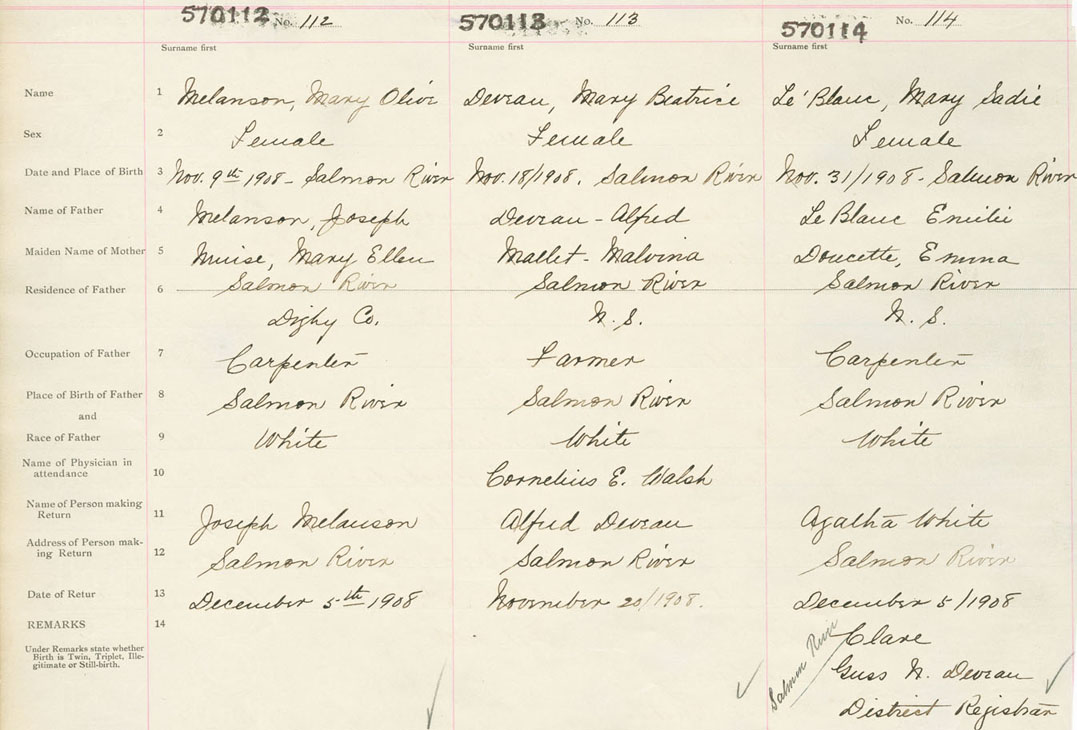 570112 No. 112 570113 No. 113 570114 No. 114
Surname first Surname first Surname first
Name 1 Melanson, Mary Olive Deveau, Mary Beatrice Le'Blanc, Mary Sadie
Sex 2 Female Female Female
Date and Place of Birth 3 Nov. 9th 1908 - Salmon River Nov. 18/1908. Salmon River Nov. 31/1908 - Salmon River
Name of Father 4 Melanson, Joseph Deveau - Alfred Le Blanc Emilie
Maiden Name of Mother 5 Muise, Mary Ellen Mallet - Malvina Doucette, Emma
Residence of Father 6 Salmon River Salmon River Salmon River
Digby Co. N. S. N. S.
Occupation of Father 7 Carpenter Farmer Carpenter
Place of Birth of Father 8 Salmon River Salmon River Salmon River
and
Race of Father 9 White White White
Name of Physician in
attendance 10 Cornelius E. Walsh
Name of Person making
Return 11 Joseph Melanson Alfred Deveau Agatha White
Address of Person mak-
ing Return 12 Salmon River Salmon River Salmon River
Date of Retur 13 December 5th 1908 November 20/1908. December 5/1908
REMARKS 14 Clare
Under Remarks state whether
Birth is Twin, Triplet, Ille-
gitimate or Still-birth.
Salmon River
Guss N. Deveau
District Registrar